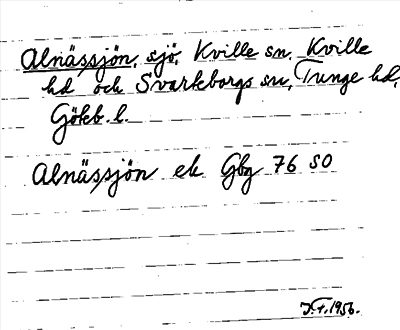 Alnässjön, sjö, Kville sn, Kville
hd och Svarteborgs sn, Tunge hd,
Gökb. l.
Alnässjön ek Gbg 76 SO
1956.